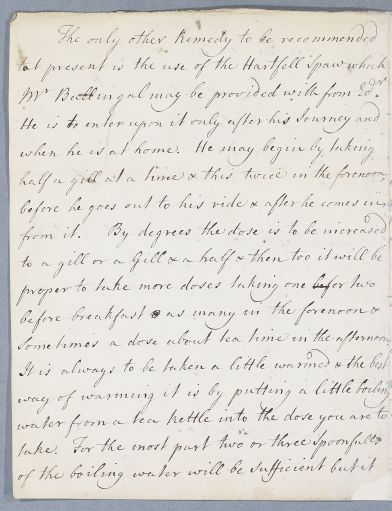 The only other Remedy to be recommended
at present is the use of the Hartfell Spaw which
Mr may be provided with from Edr
He is to enter upon it only after his Journey and
when he is at home. He may begin by taking
half a gill at a time & this twice in the forenoon,
before he goes out to his ride & after he comes in
from it. By degrees the dose is to be increased
to a gill or a Gill & a half & then too it will be
proper to take more doses taking one or two
before breakfast as many in the forenoon &
sometimes a dose about tea time in the afternoon
It is always to be taken a little warmed & the best
way of warming it is by putting a little boiling
water from a tea kettle into the dose you are to
take. For the most part two or three spoonfulls
of the boiling water will be sufficient but it